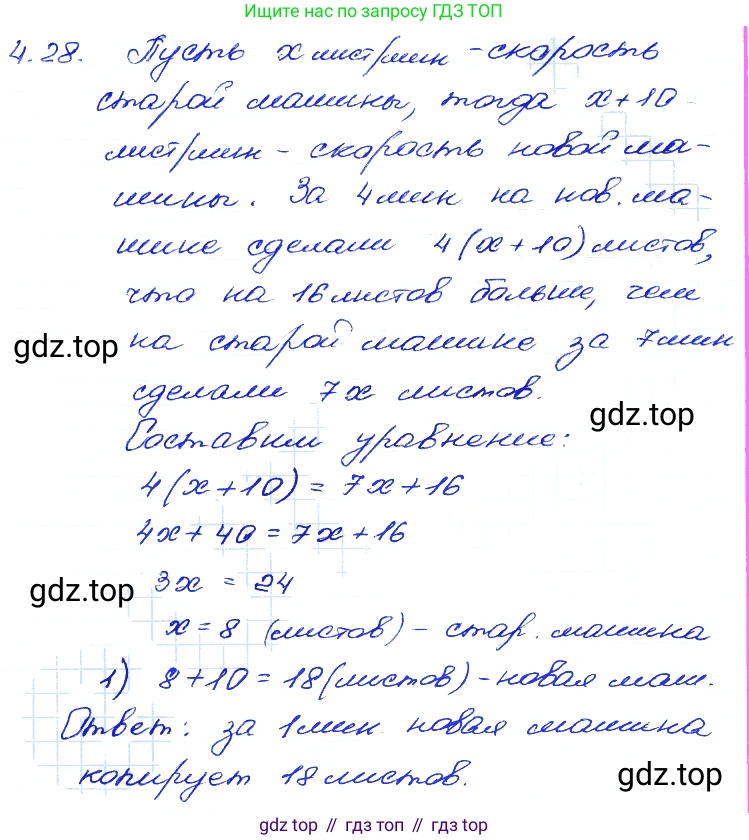 Ищите нас по запросу ГДЗ ТОП
4.28. Пусть x лист/мин - скорость
старой машины, тогда x+10
лист/мин - скорость новой ма-
шины. За 4 мин на нов. ма-
шине сделали 4(x+10) листов,
что на 16 листов больше, чем
gdz.top
на старой машине за 7 мин
сделали 7x листов.
gdz.top
Составим уравнение:
4(x+10) = 7x+16
4x+40=7x+16
gdz.top
3x = 24
x=8 (листов) - стар. машина
1) 8+10=18(листов) - новая маш.
Ответ: за 1 мин новая машина
копирует 18 листов.
gdz.top
gdz.top // гдз топ // gdz.top